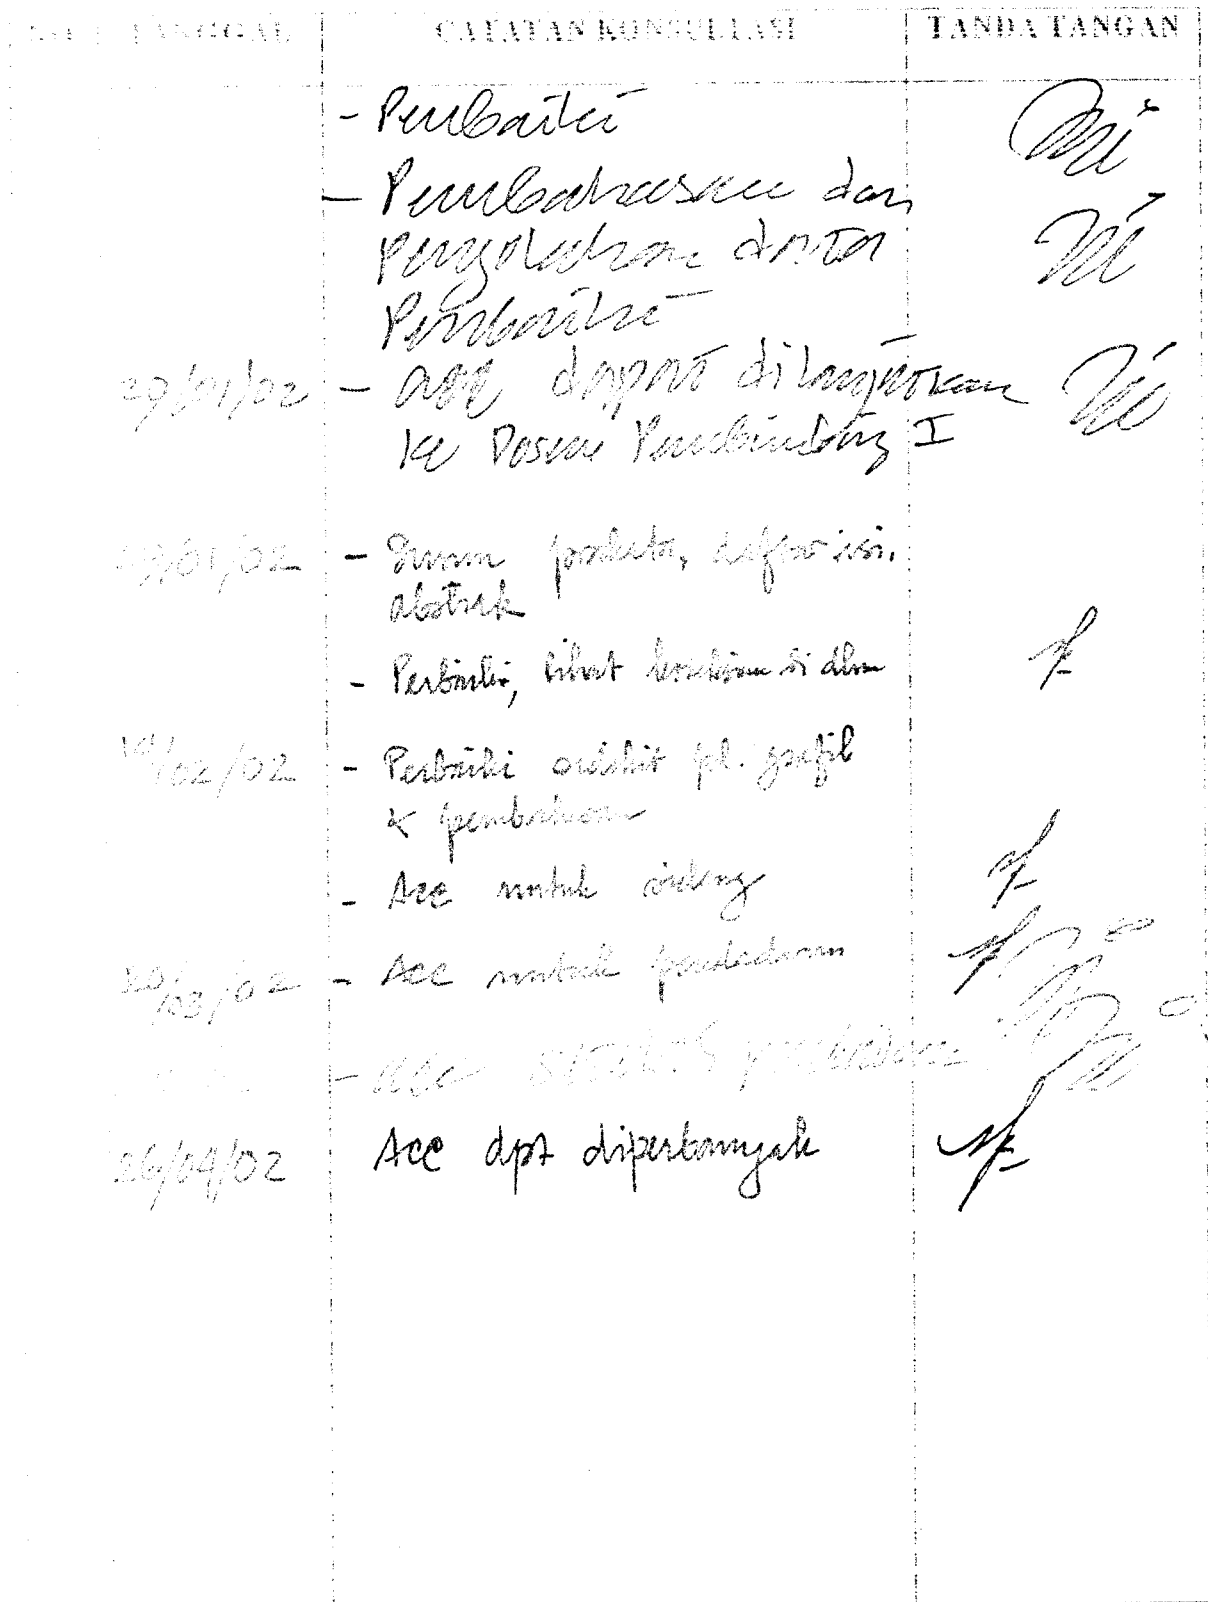 NO TANGGAL CATATAN KONSULTASI TANDA TANGAN
- Perbaiki
- Pembahasan dan
pengolahan data
Perbaiki
29/01/02 - acc dapat dilanjutkan
ke Dosen Pembimbing I
/01/02 - daftar isi,
abstrak
- Perbaiki, lihat koreksian di dlm
/02/02 - Perbaiki sedikit grafik
& pembahasan
- Acc untuk sidang
/03/02 - Acc untuk pendadaran
- acc
26/04/02 Acc dpt diperbanyak